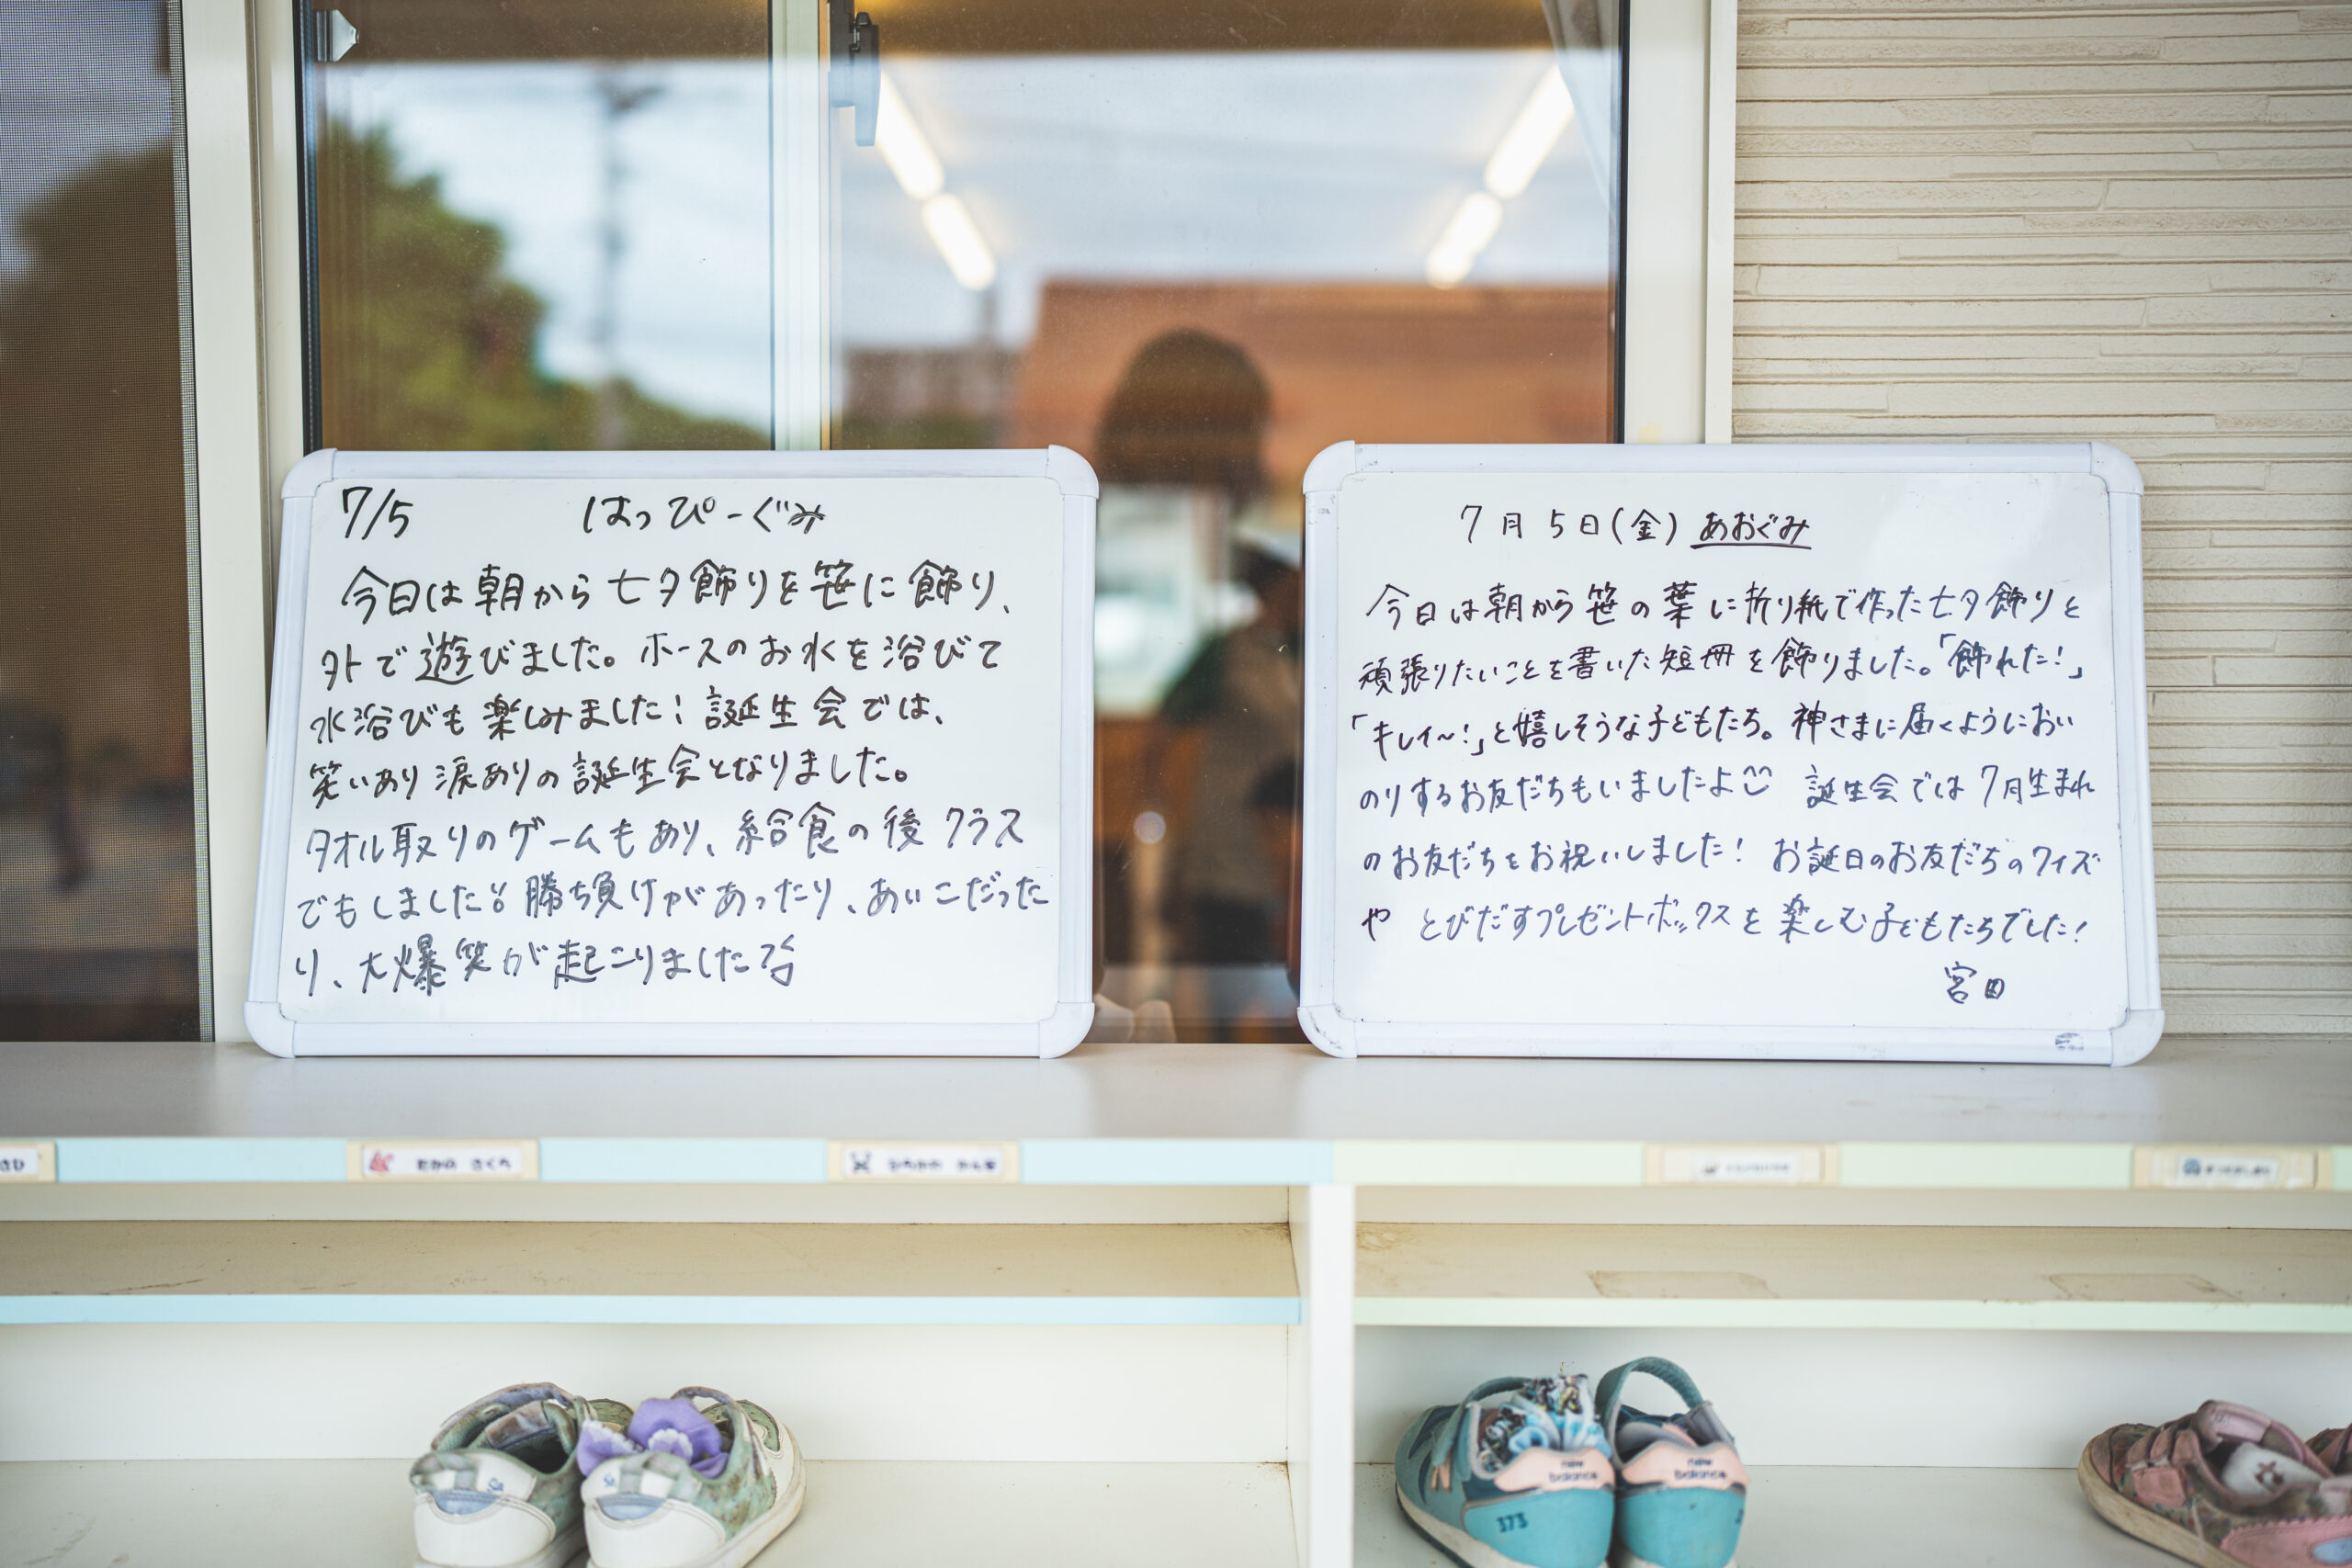 7/5 はっぴーぐみ
今日は朝から七夕飾りを笹に飾り、
外で遊びました。ホースのお水を浴びて
水浴びも楽しみました！誕生会では、
笑いあり涙ありの誕生会となりました。
タオル取りのゲームもあり、給食の後クラス
でもしました！勝ち負けがあったり、あいこだった
り、大爆笑が起こりました
7月5日(金) あおぐみ
今日は朝から笹の葉に折り紙で作った七夕飾りと
頑張りたいことを書いた短冊を飾りました。「飾れた！」
「キレイ〜！」と嬉しそうな子どもたち。神さまに届くようにおい
のりするお友だちもいましたよ^^ 誕生会では7月生まれ
のお友だちをお祝いしました！ お誕日のお友だちのクイズ
や とびだすプレゼントボックスを楽しむ子どもたちでした！
宮田
new balance
373
new balance